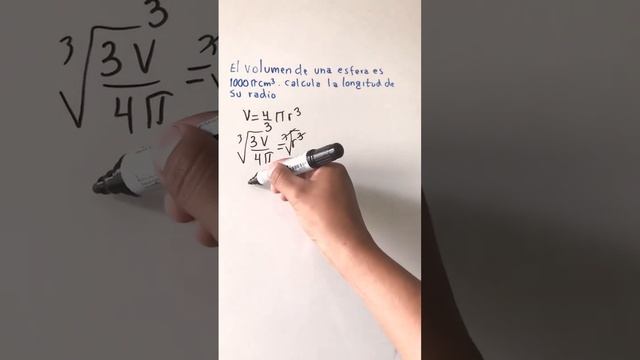 El volumen de una esfera es
1000 π cm³. calcula la longitud de
su radio
V = 4/3 π r³
³√(3V/4π) = ³√r³